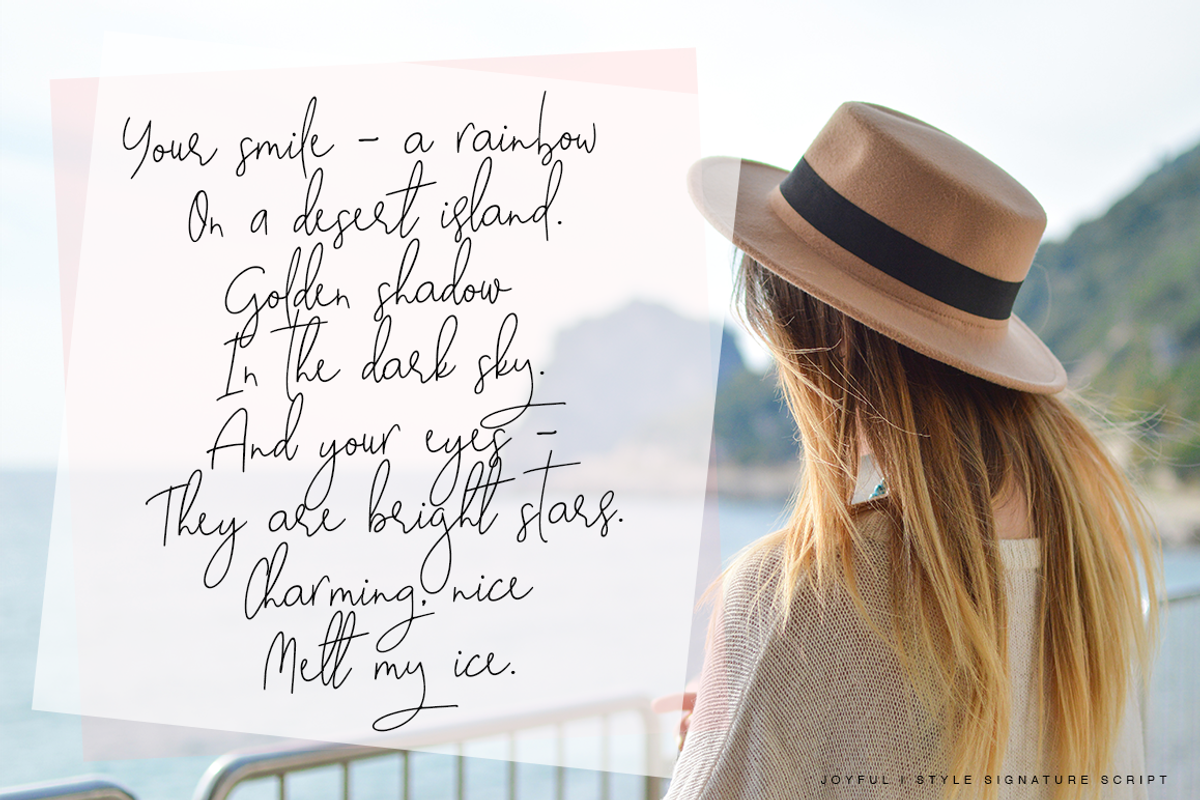 Your smile - a rainbow
On a desert island.
Golden shadow
In the dark sky.
And your eyes -
They are bright stars.
Charming, nice
Melt my ice.
JOYFUL | STYLE SIGNATURE SCRIPT